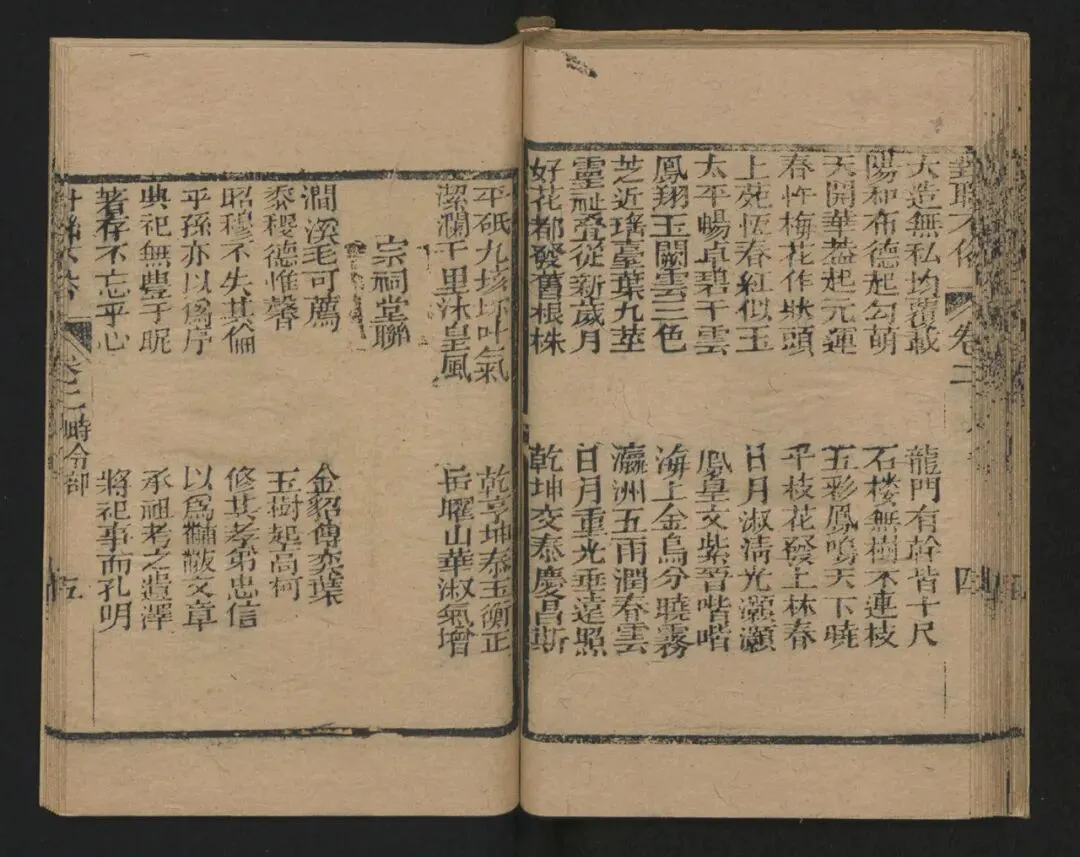 對聯不俗 卷二 四
大造無私均覆載 龍門有幹皆十尺
陽和布德起勾萌 石楼無樹不連枝
天開華蓋起元運 五彩鳳鳴天下曉
春 梅花作狀頭 千枝花發上林春
上苑恆春紅似玉 日月淑淸光灝灝
太平暢卓碧干雲 鳳皇文紫晉喈喈
鳳翔玉闕雲三色 海上金烏分曉霧
芝近瑤臺葉九莖 瀛洲五雨潤春雲
靈祉叠從新歲月 日月重光垂遠照
好花都發舊根株 乾坤交泰慶昌斯
平砥九垓 叶氣 乾亨坤泰玉衡正
潔瀾千里沐皇風 岳曜山華淑氣增
宗祠堂聯
澗溪毛可薦 金貂傳奕葉
黍稷德惟馨 玉樹起高柯
昭穆不失其倫 修其孝弟忠信
子孫亦以爲序 以爲黼黻文章
典祀無豊于昵 承祖考之遺澤
著存不忘乎心 將祀事而孔明
卷二 時令部 五